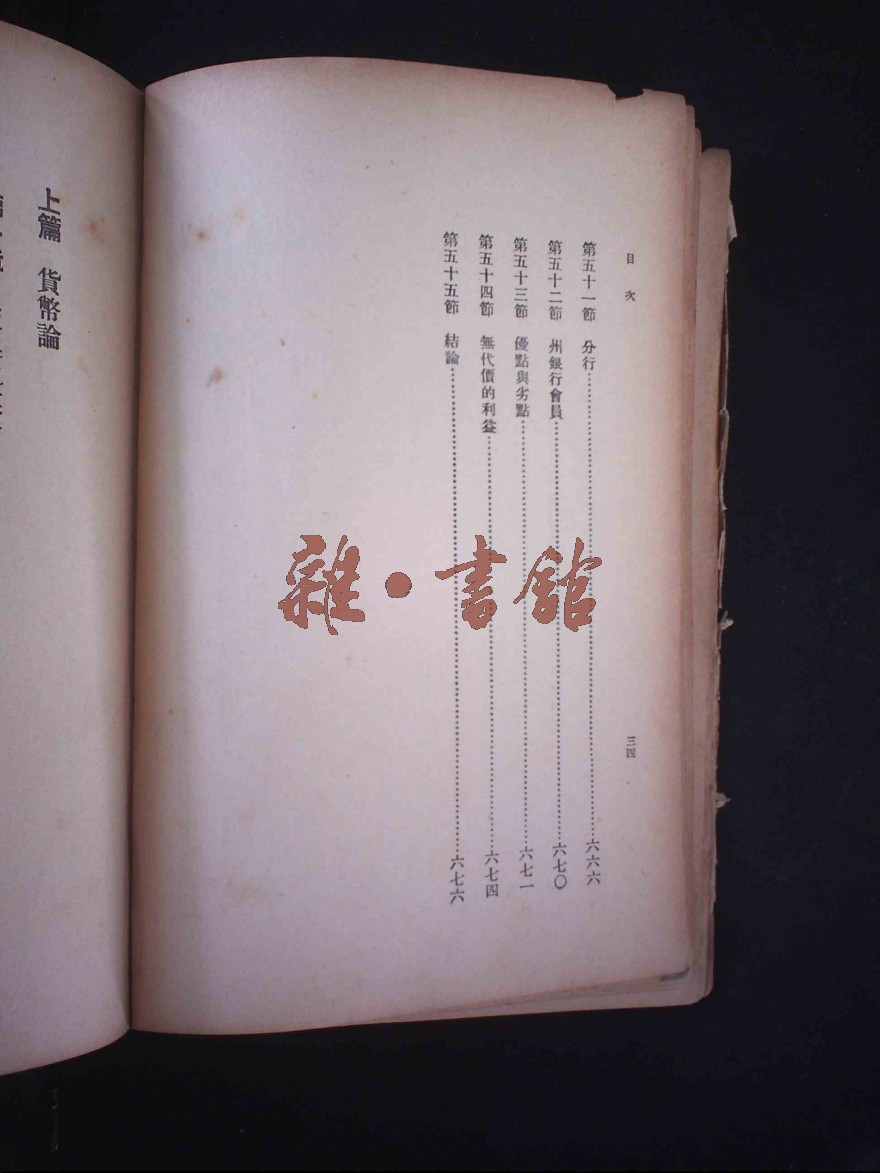 目次
三四
第五十一節 分行……六六六
第五十二節 州銀行會員……六七〇
第五十三節 優點與劣點……六七一
第五十四節 無代價的利益……六七四
第五十五節 結論……六七六
上篇 貨幣論
雜·書館